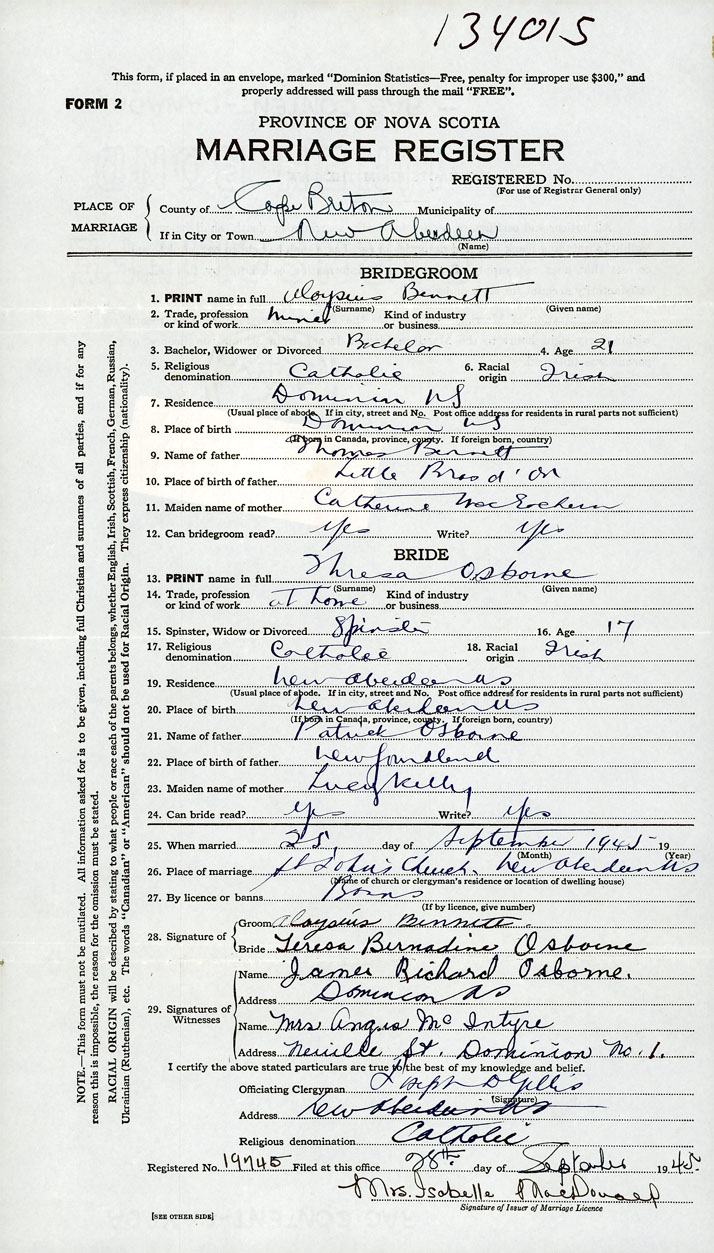 134015
This form, if placed in an envelope, marked "Dominion Statistics—Free, penalty for improper use $300," and
properly addressed will pass through the mail "FREE".
FORM 2
PROVINCE OF NOVA SCOTIA
MARRIAGE REGISTER
REGISTERED No.
(For use of Registrar General only)
PLACE OF MARRIAGE
County of Cape Breton Municipality of
If in City or Town New Aberdeen
(Name)
BRIDEGROOM
1. PRINT name in full Aloysius Bennett
(Surname) (Given name)
2. Trade, profession or kind of work miner Kind of industry or business
3. Bachelor, Widower or Divorced Bachelor 4. Age 21
5. Religious denomination Catholic 6. Racial origin Irish
7. Residence Dominion NS
(Usual place of abode. If in city, street and No. Post office address for residents in rural parts not sufficient)
8. Place of birth Dominion NS
(If born in Canada, province, county. If foreign born, country)
9. Name of father Thomas Bennett
10. Place of birth of father Little Bras d'Or
11. Maiden name of mother Catherine MacEachern
12. Can bridegroom read? yes Write? yes
BRIDE
13. PRINT name in full Thresa Osborne
(Surname) (Given name)
14. Trade, profession or kind of work at home Kind of industry or business
15. Spinster, Widow or Divorced Spinster 16. Age 17
17. Religious denomination Catholic 18. Racial origin Irish
19. Residence New Aberdeen NS
(Usual place of abode. If in city, street and No. Post office address for residents in rural parts not sufficient)
20. Place of birth New Aberdeen NS
(If born in Canada, province, county. If foreign born, country)
21. Name of father Patrick Osborne
22. Place of birth of father Newfoundland
23. Maiden name of mother Lucy Kelly
24. Can bride read? yes Write? yes
25. When married 25, day of September 1945 19
(Month) (Year)
26. Place of marriage St John's Church, New Aberdeen NS
(Name of church or clergyman's residence or location of dwelling house)
27. By licence or banns Banns
(If by licence, give number)
28. Signature of
Groom Aloysius Bennett.
Bride Teresa Bernadine Osborne
29. Signatures of Witnesses
Name James Richard Osborne.
Address Dominion NS
Name Mrs Angus McIntyre
Address Neville St. Dominion No. 1.
I certify the above stated particulars are true to the best of my knowledge and belief.
Officiating Clergyman Joseph D Gillis
(Signature)
Address New Aberdeen NS
Religious denomination Catholic
Registered No. 19745 Filed at this office 28th. day of September 1945
Mrs. Isabelle MacDougall
Signature of Issuer of Marriage Licence
[SEE OTHER SIDE]
NOTE.—This form must not be mutilated. All information asked for is to be given, including full Christian and surnames of all parties, and if for any
reason this is impossible, the reason for the omission must be stated.
RACIAL ORIGIN will be described by stating to what people or race each of the parents belongs, whether English, Irish, Scottish, French, German, Russian,
Ukrainian (Ruthenian), etc. The words "Canadian" or "American" should not be used for Racial Origin. They express citizenship (nationality).